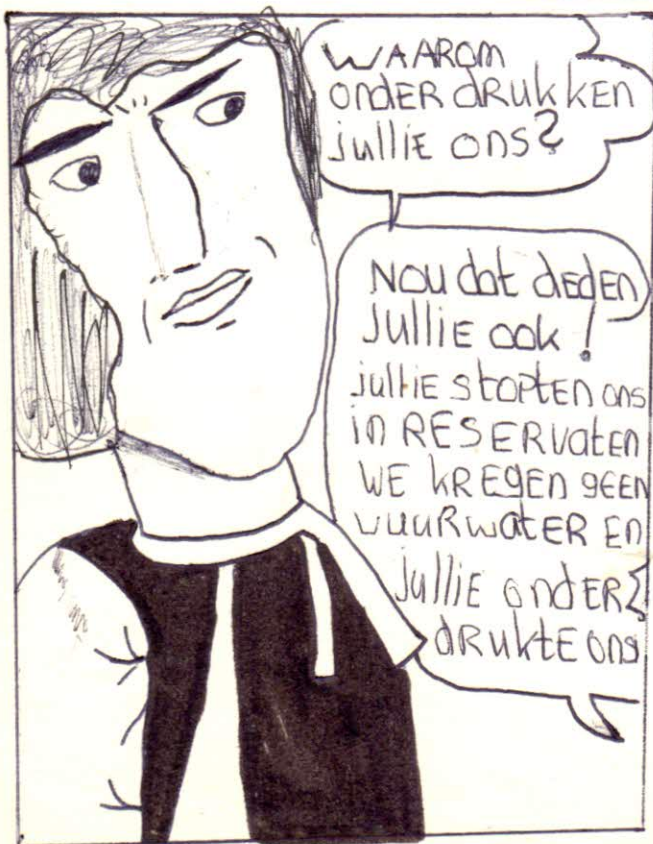 WAAROM
ONDER dRUKKEN
jullIE ONS?
NOU dat dEdEN
JullIE ook!
jullIE stoptEN ons
in RESERVatEN
WE KREgEN gEEN
VUURWatER EN
jullIE ondER
dRuktE ons